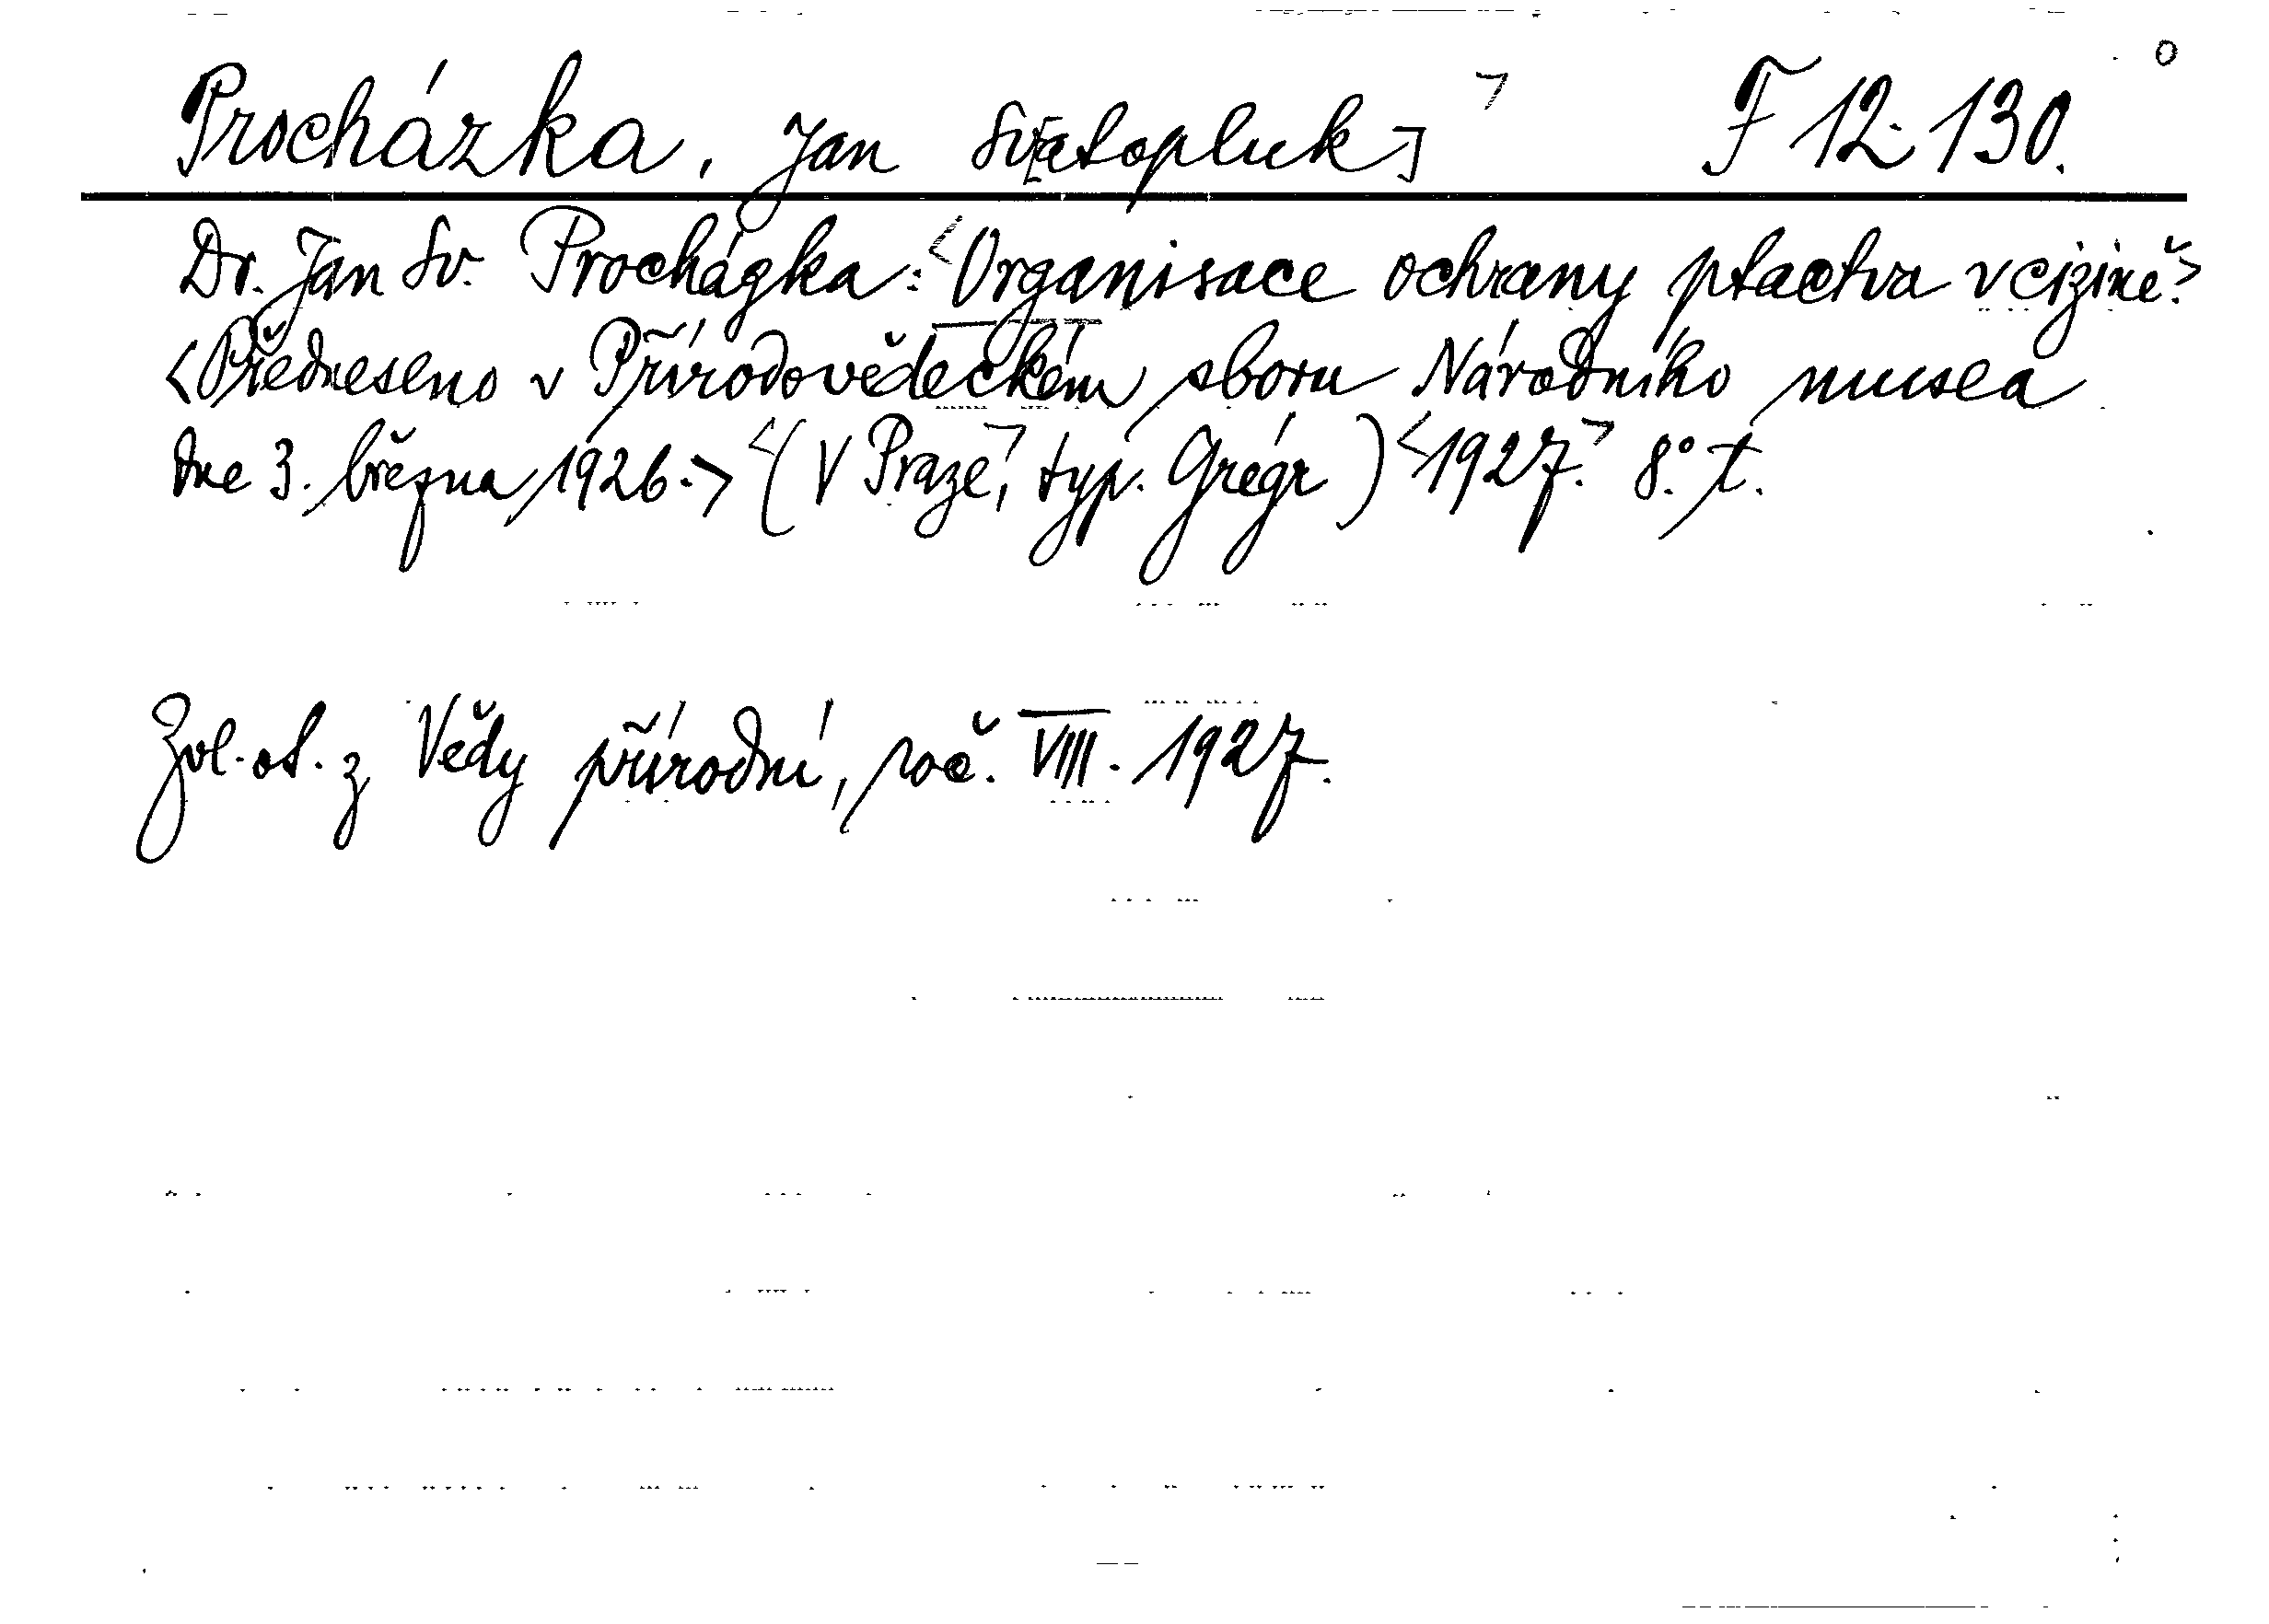 Procházka, Jan Sv[atopluk] > F 12·130. o
Dr. Jan Sv. Procházka: <Organisace ochrany ptactva v cizině.>
<Předneseno v Přírodovědeckém sboru Národního musea
dne 3. března 1926.> <(V Praze,> typ. Grégr) <1927.> 8.° t.
Zvl. ot. z Vědy přírodní, roč. VIII. 1927.